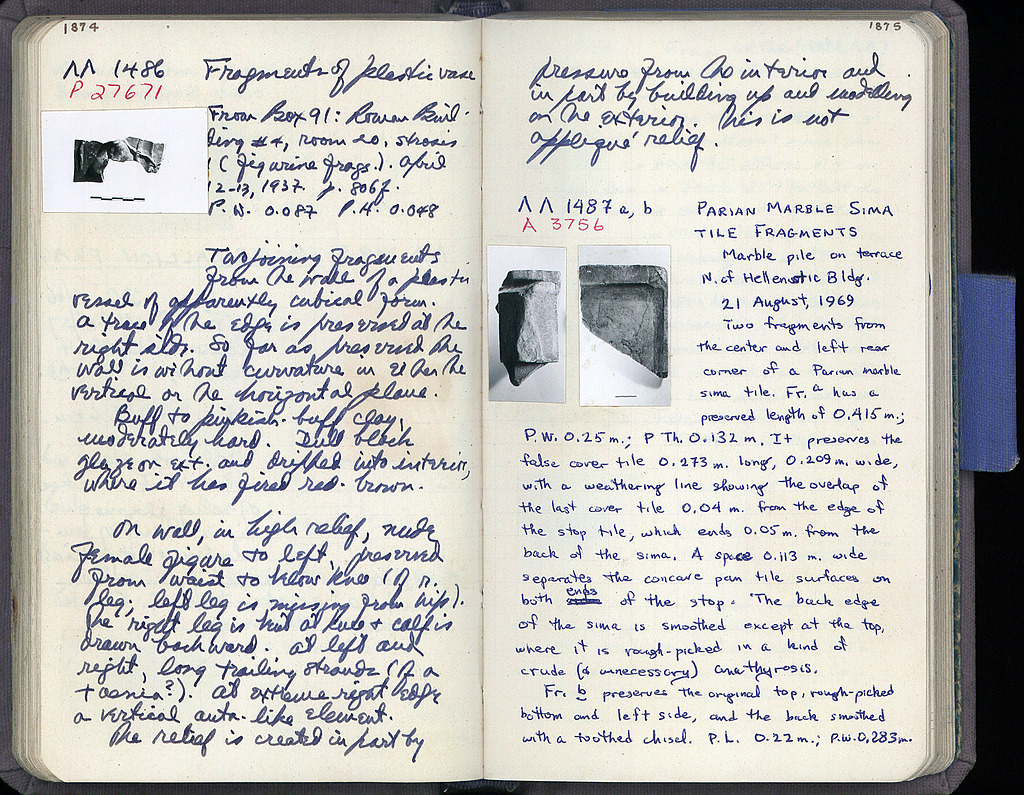 1874
ΛΛ 1486
P 27671
Fragments of plastic vase
From Box 91: Roman Buil-
ding #4, room 20, strosis
1 (figurine frags.). April
12-13, 1937 p. 806f.
P.W. 0.087 P.H. 0.048
Two joining fragments
from the wall of a plastic
vessel of apparently cubical form.
A trace of the edge is preserved at the
right side. So far as preserved the
wall is without curvature in either the
vertical or the horizontal plane.
Buff to pinkish-buff clay,
moderately hard. Dull black
glaze on ext. and drifted into interior,
where it has fired red-brown.
On wall, in high relief, nude
female figure to left, preserved
from waist to below knee (of r.
leg; left leg is missing from hip).
The right leg is bent at knee + calf is
drawn backward. At left and
right, long trailing strands (of a
taenia?). At extreme right edge
a vertical anta-like element.
The relief is created in part by
1875
pressure from the interior and
in part by building up and modelling
on the exterior. This is not
appliqué relief.
ΛΛ 1487 a, b
A 3756
PARIAN MARBLE SIMA
TILE FRAGMENTS
Marble pile on terrace
N. of Hellenistic Bldg.
21 August, 1969
Two fragments from
the center and left rear
corner of a Parian marble
sima tile. Fr. a has a
preserved length of 0.415 m.;
P.W. 0.25 m.; P Th. 0.132 m. It preserves the
false cover tile 0.273 m. long, 0.209 m. wide,
with a weathering line showing the overlap of
the last cover tile 0.04 m. from the edge of
the stop tile, which ends 0.05 m. from the
back of the sima. A space 0.113 m. wide
separates the concave pan tile surfaces on
both ends of the stop. The back edge
of the sima is smoothed except at the top,
where it is rough-picked in a kind of
crude (& unnecessary) anathyrosis.
Fr. b preserves the original top, rough-picked
bottom and left side, and the back smoothed
with a toothed chisel. P.L. 0.22 m.; P.W. 0.283 m.